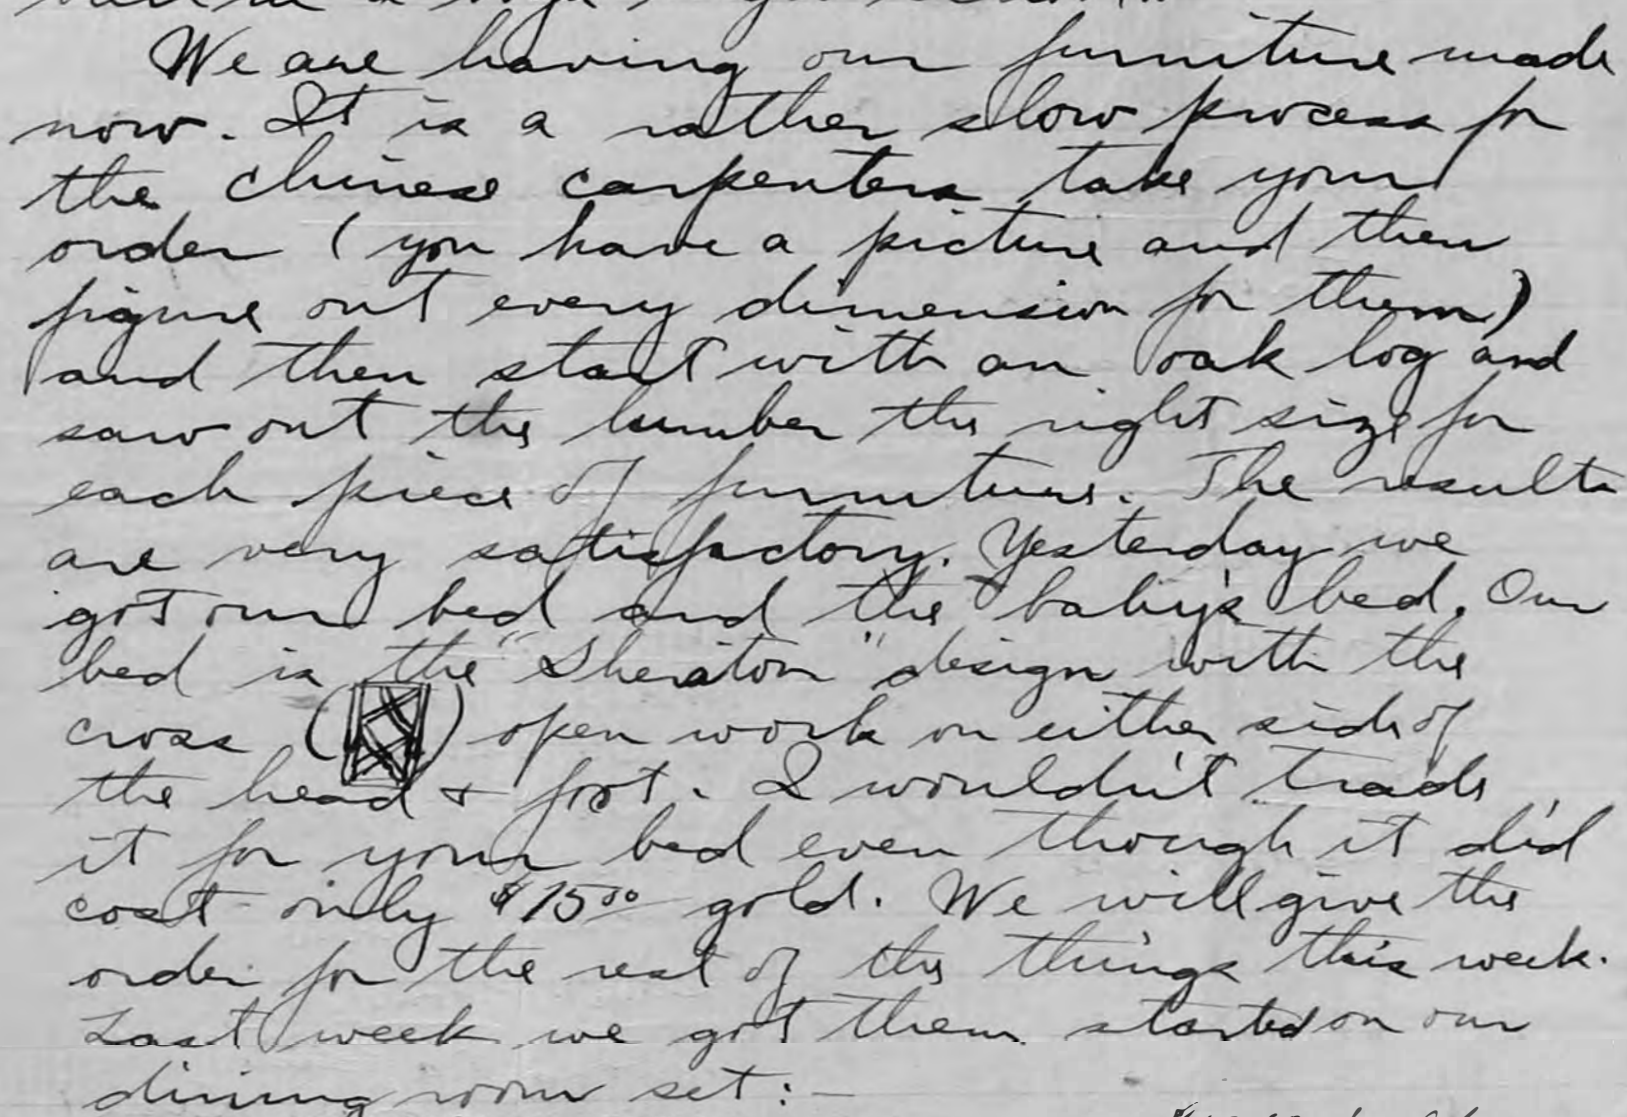 We are having our furniture made
now. It is a rather slow process for
the Chinese carpenters take your
order (you have a picture and then
figure out every dimension for them)
and then start with an oak log and
saw out the lumber the right size for
each piece of furniture. The results
are very satisfactory. Yesterday we
got our bed and the baby's bed. Our
bed is the "Sheraton" design with the
cross ( ) open work on either side of
the head & foot. I wouldn't trade
it for your bed even though it did
cost only $1500 gold. We will give the
order for the rest of the things this week.
Last week we got them started on our
dining room set:-